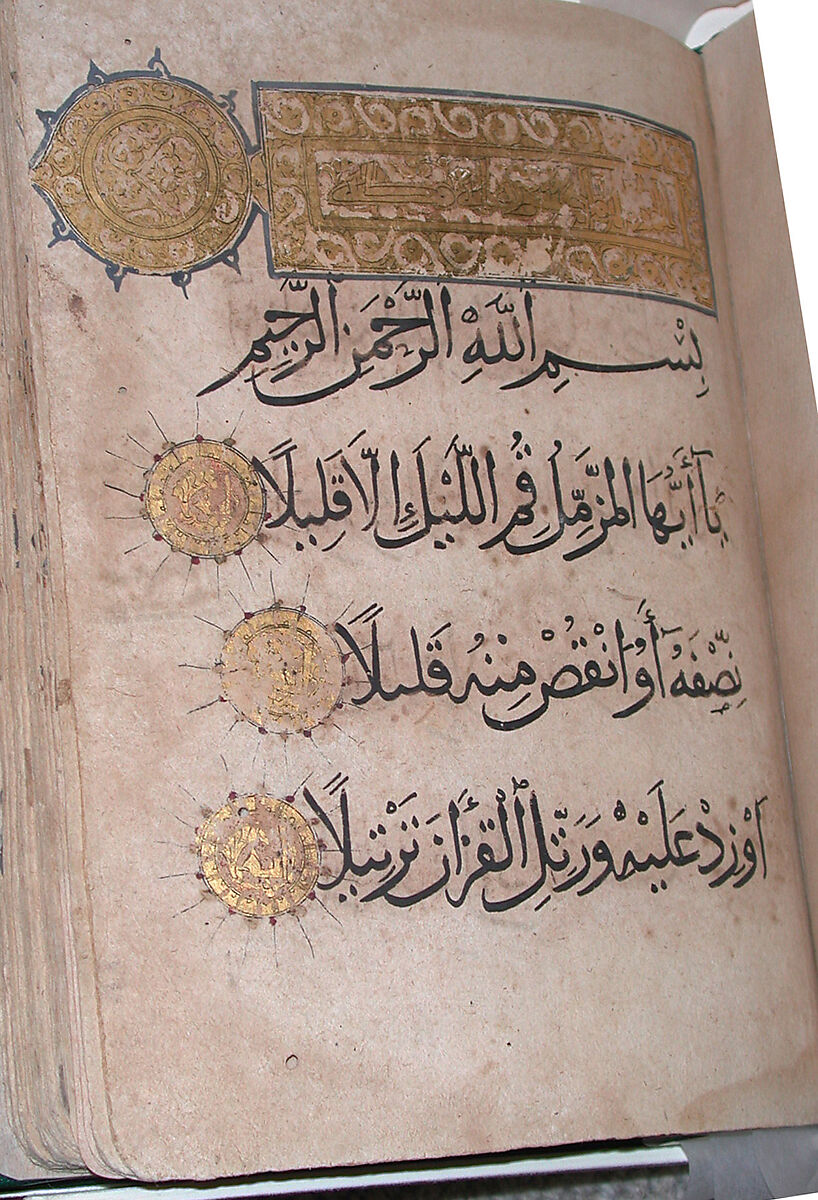 بِسْمِ ٱللَّهِ ٱلرَّحْمَنِ ٱلرَّحِيمِ
يَآ أَيُّهَا المُزَّمِّلُ قُمِ اللَّيْلَ إِلَّا قَلِيلًا
نِّصْفَهُٓ أَوِ انْقُصْ مِنْهُ قَلِيلًا
أَوْ زِدْ عَلَيْهِ وَرَتِّلِ ٱلْقُرْأَنَ تَرْتِيلًا